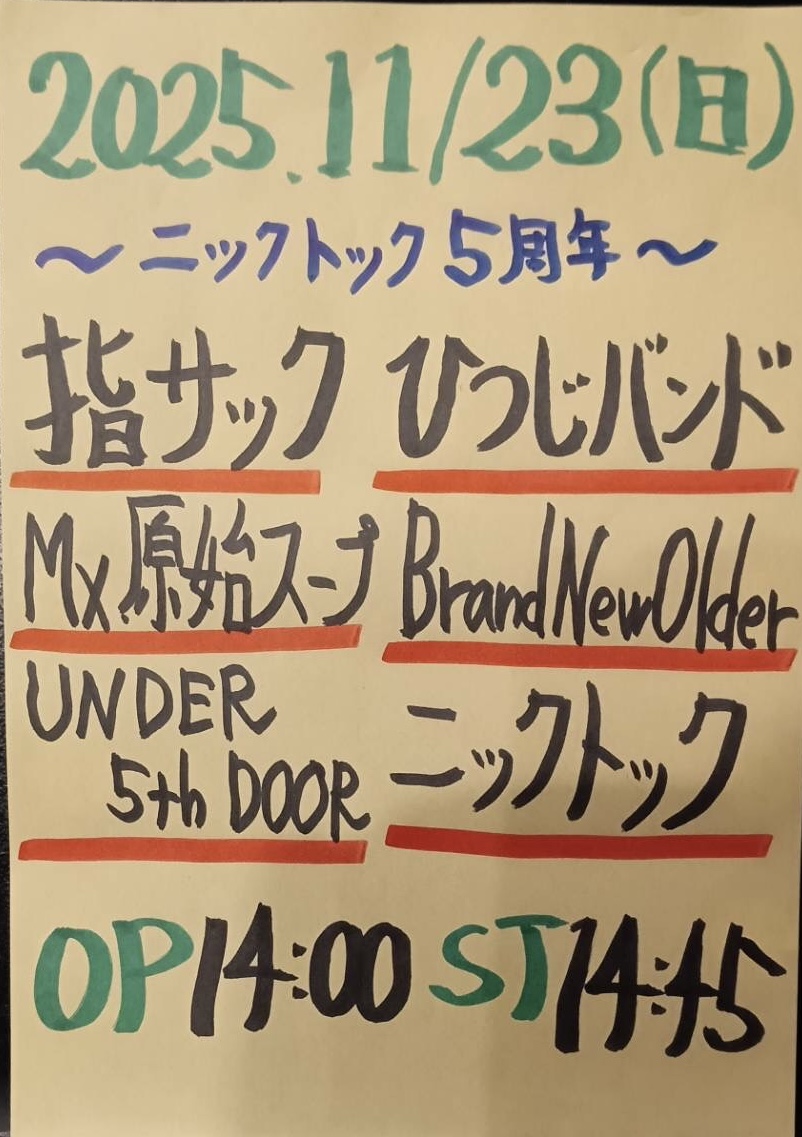 2025.11/23(日)
～ニックトック5周年～
指サック ひつじバンド
Mx原始スープ BrandNewOlder
UNDER
5th DOOR ニックトック
OP14:00 ST14:45